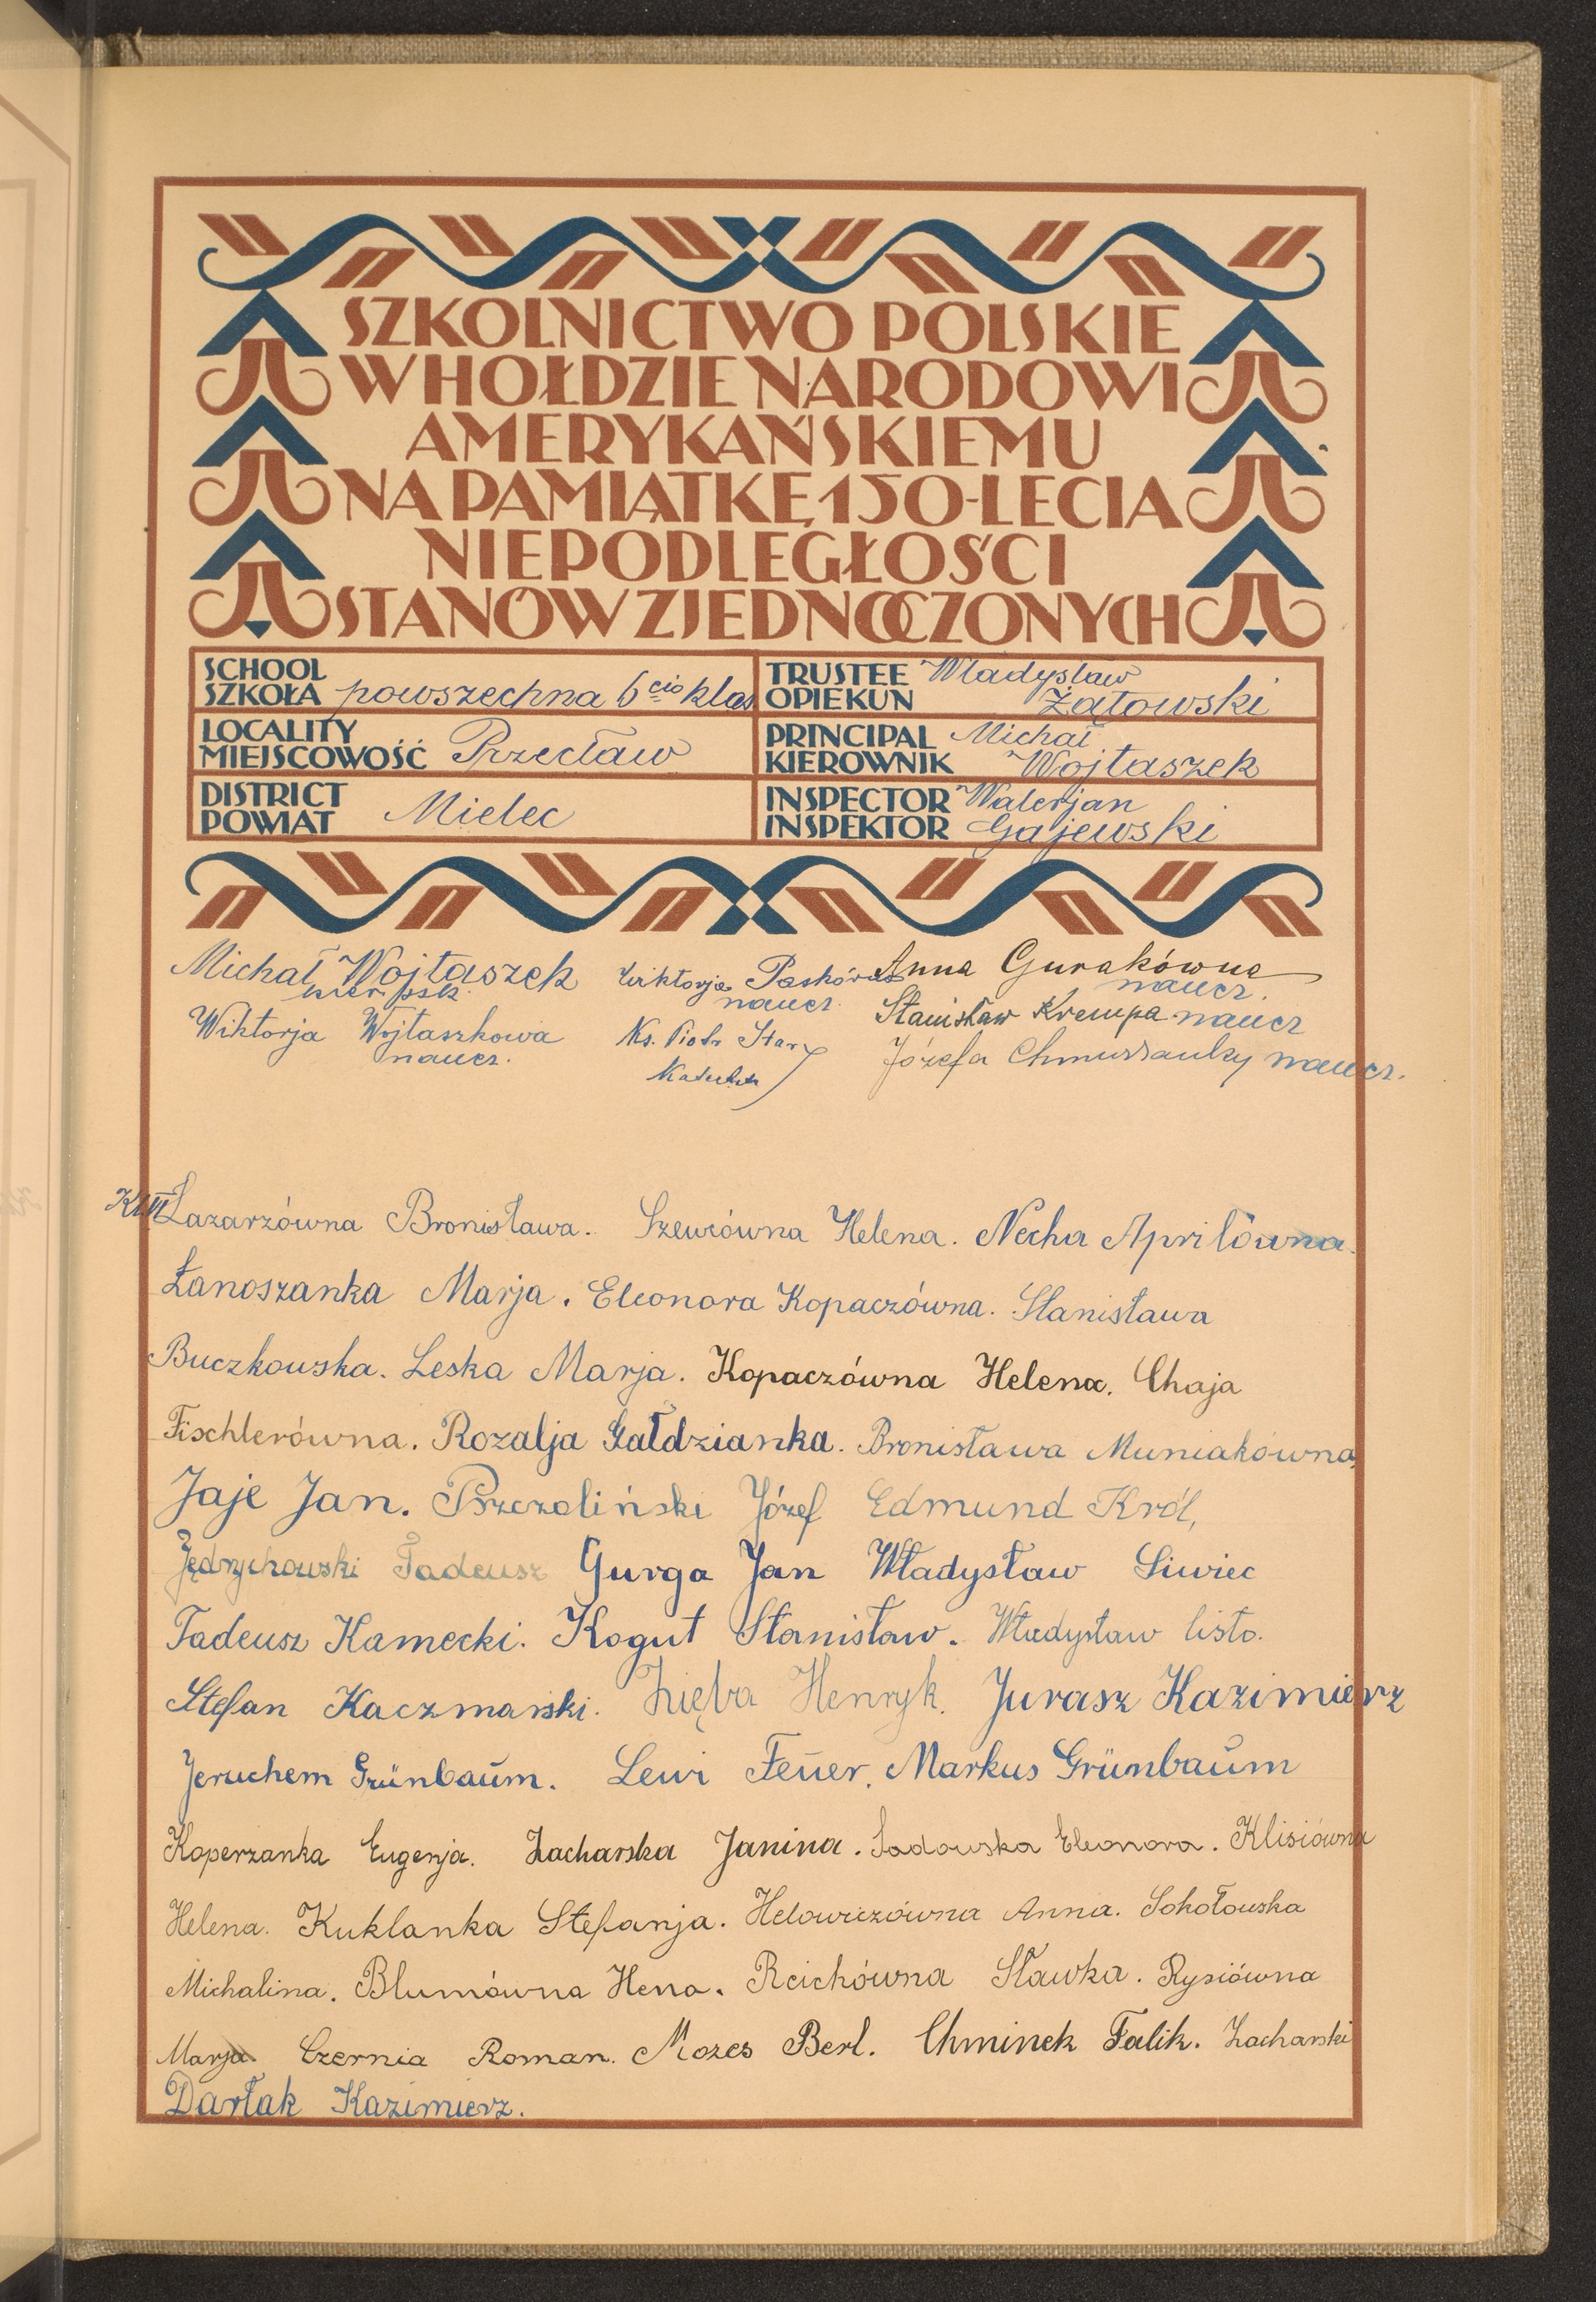 SZKOLNICTWO POLSKIE
W HOŁDZIE NARODOWI
AMERYKAŃSKIEMU
NA PAMIĄTKĘ 150-LECIA
NIEPODLEGŁOŚCI
STANÓW ZJEDNOCZONYCH
SCHOOL
SZKOŁA powszechna 6cio klas
TRUSTEE
OPIEKUN Władysław Żątowski
LOCALITY
MIEJSCOWOŚĆ Przecław
PRINCIPAL
KIEROWNIK Michał Wojtaszek
DISTRICT
POWIAT Mielec
INSPECTOR
INSPEKTOR Walerjan Gajewski
Michał Wojtaszek
kier. psk.
Wiktorja
naucz.
Anna Gurakówna
naucz.
Wiktorja Wojtaszkowa
naucz.
Ks. Piotr Stary
Katecheta
Stanisław Krempa naucz
Józefa naucz.
Kl. VI
Łazarzówna Bronisława. Szewcówna Helena. Necha Aprilówna.
Łanoszanka Marja. Eleonora Kopaczówna. Stanisława
Buczkowska. Leska Marja. Kopaczówna Helena. Chaja
Fischlerówna. Rozalja Gałdzianka. Bronisława Muniakówna,
Jaje Jan. Pszczoliński Józef Edmund Król,
Jędrzychowski Tadeusz Gurga Jan Władysław Siwiec
Tadeusz Kamecki. Kogut Stanisław. Władysław Listo.
Stefan Kaczmarski. Zięba Henryk. Jurasz Kazimierz
Jeruchem Grünbaum. Lewi Feuer. Markus Grünbaum
Koperzanka Eugenja. Zacharska Janina. Sadowska Eleonora. Klisiówna
Helena. Kuklanka Stefanja. Helowiczówna Anna. Sokołowska
Michalina. Blumówna Hena. Reichówna Sławka. Rysiówna
Marja. Czernia Roman. Mozes Berl. Chminek Falik. Zacharski
Dartak Kazimierz.